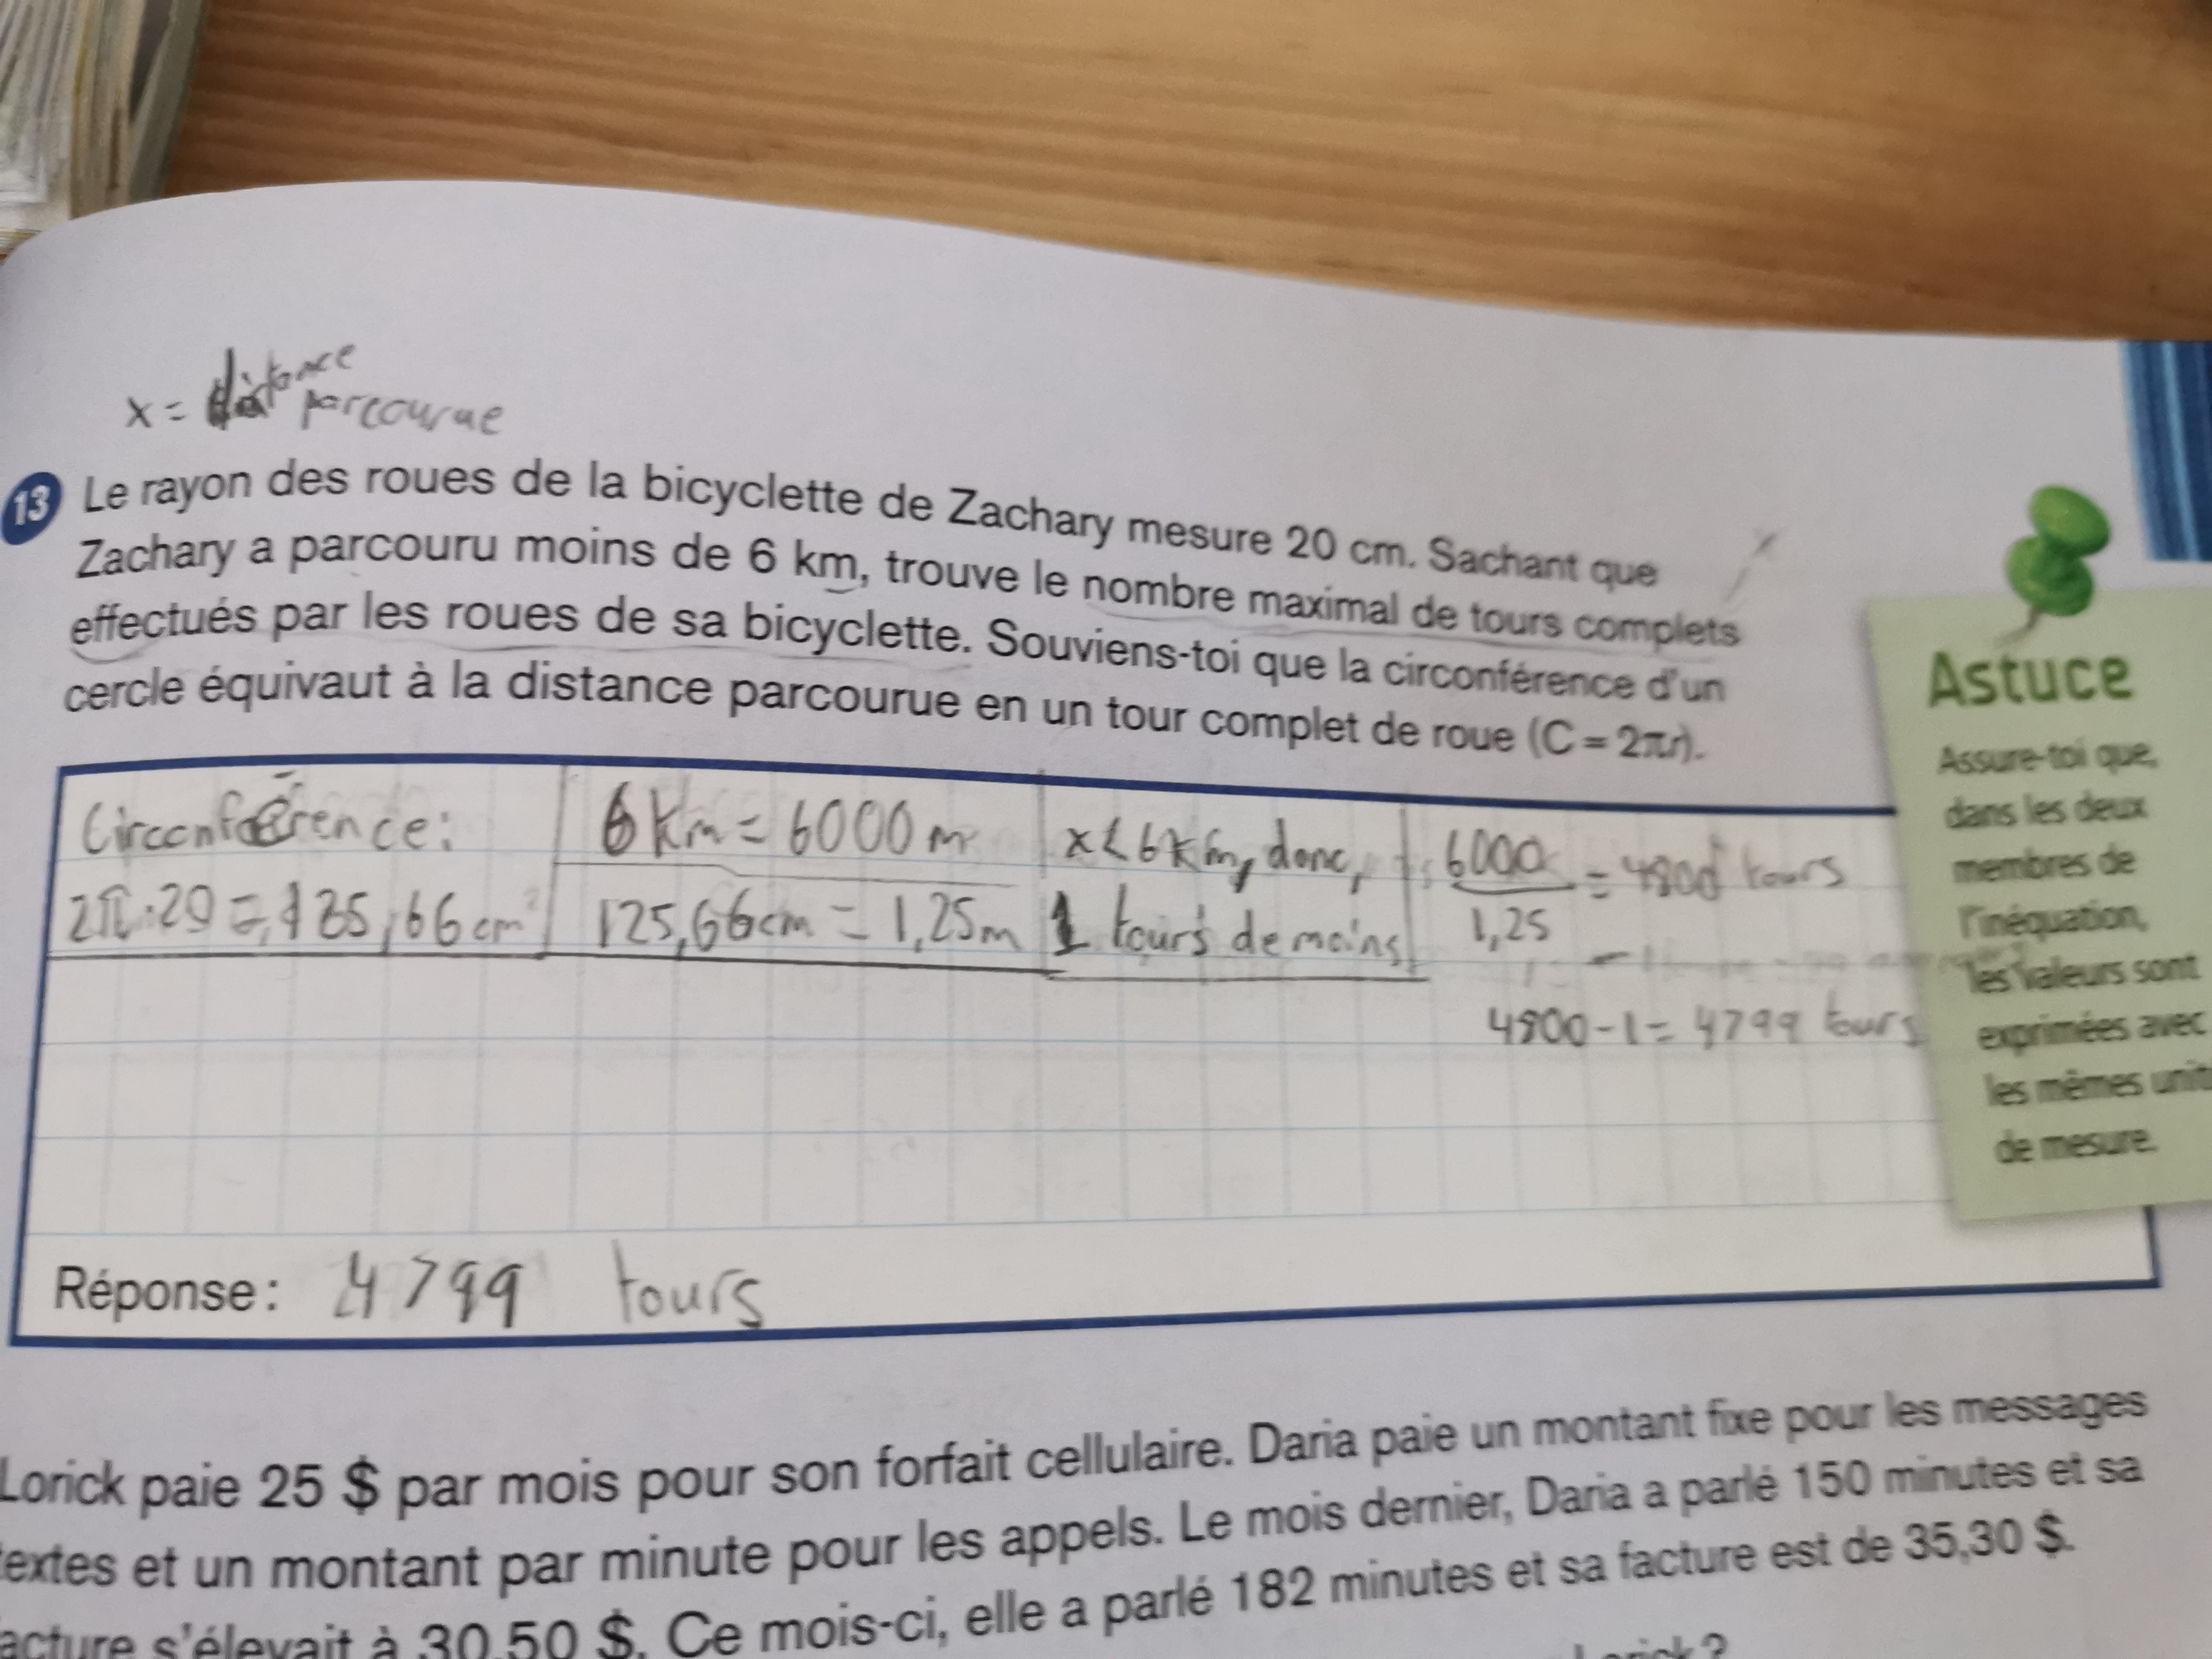 x = distance
parcourue
13 Le rayon des roues de la bicyclette de Zachary mesure 20 cm. Sachant que
Zachary a parcouru moins de 6 km, trouve le nombre maximal de tours complets
effectués par les roues de sa bicyclette. Souviens-toi que la circonférence d'un
cercle équivaut à la distance parcourue en un tour complet de roue (C = 2πr).
Circonférence:
2π·20 = 125,66 cm
6 km = 6000 m
125,66cm = 1,25m
x < 6 km, donc,
1 tours de moins
6000
1,25
= 4800 tours
4800 - 1 = 4799 tours
Réponse : 4799 tours
Astuce
Assure-toi que,
dans les deux
membres de
l'inéquation,
les valeurs sont
exprimées avec
les mêmes unit
de mesure.
Lorick paie 25 $ par mois pour son forfait cellulaire. Daria paie un montant fixe pour les messages
textes et un montant par minute pour les appels. Le mois dernier, Daria a parlé 150 minutes et sa
acture s'élevait à 30,50 $. Ce mois-ci, elle a parlé 182 minutes et sa facture est de 35,30 $.
Lorick ?